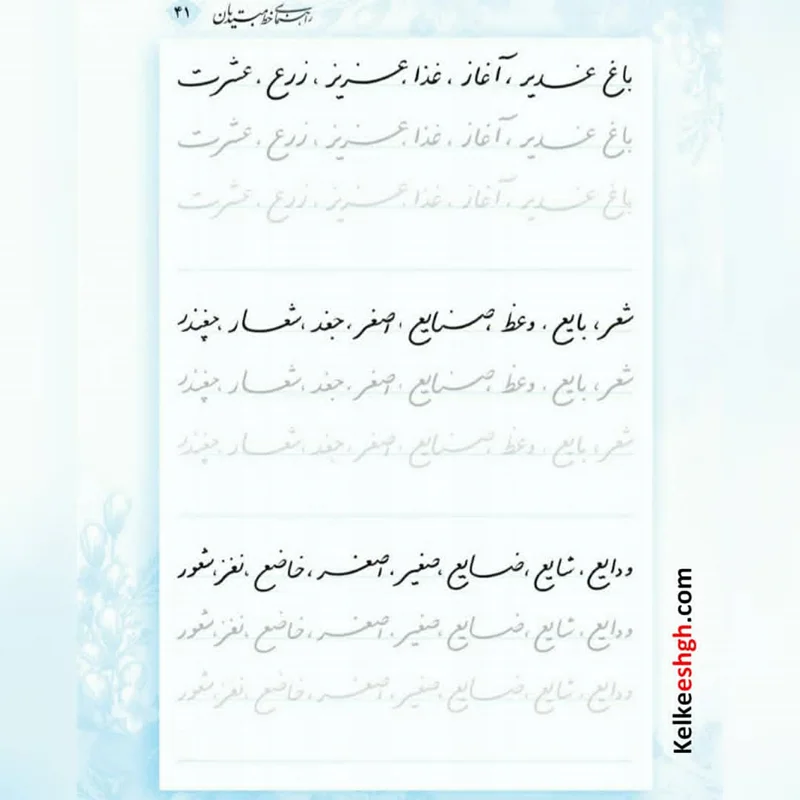 راهنمای خط مبتدیان ۴۱
باغ غدیر، آغاز، غذا، عزیز، زرع، عشرت
باغ غدیر، آغاز، غذا، عزیز، زرع، عشرت
باغ غدیر، آغاز، غذا، عزیز، زرع، عشرت
شعر، بایع، وعظ، صنایع، اصغر، جغد، شعار، چغندر
شعر، بایع، وعظ، صنایع، اصغر، جغد، شعار، چغندر
شعر، بایع، وعظ، صنایع، اصغر، جغد، شعار، چغندر
ودایع، شایع، ضایع، صغیر، اصغر، خاضع، نغز، شعور
ودایع، شایع، ضایع، صغیر، اصغر، خاضع، نغز، شعور
ودایع، شایع، ضایع، صغیر، اصغر، خاضع، نغز، شعور
Kelkeeshgh.com